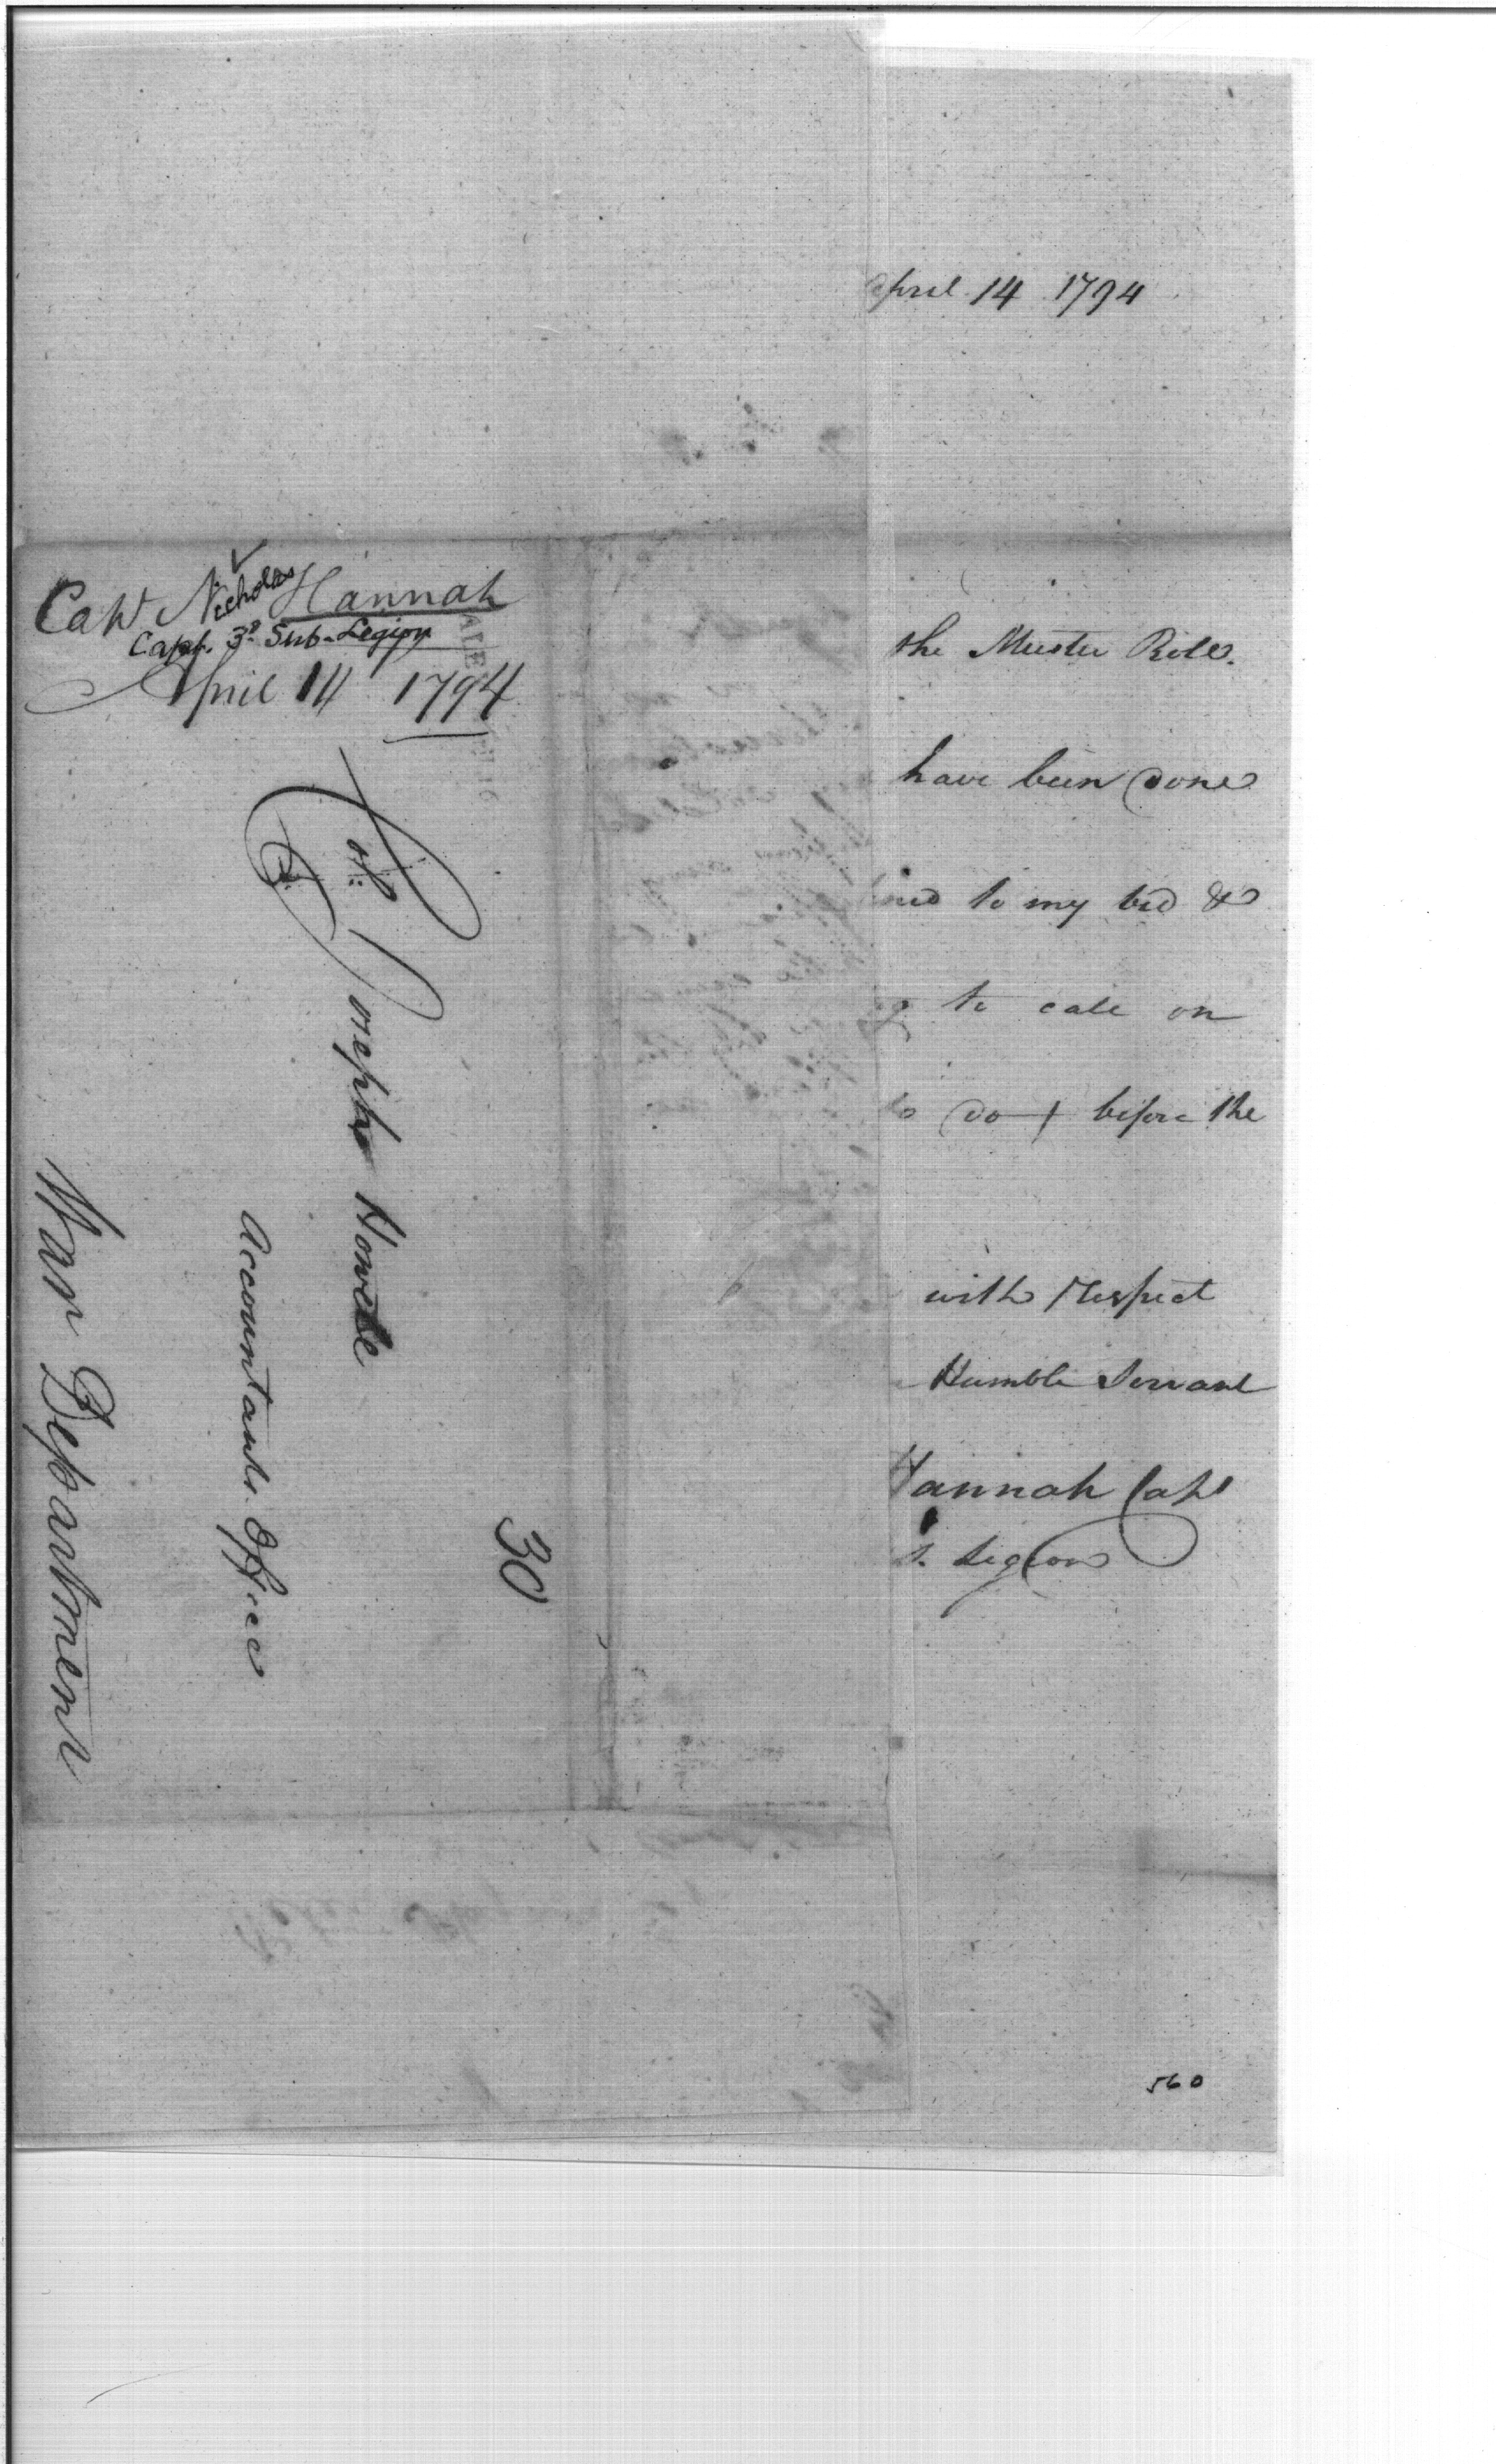 Capt Nicholas Hannah
Capt. 3d Sub-Legion
April 14 1794
Joseph Howell
Accountants Office
War Department
30
April 14 1794
the Muster Role.
have been done
to my bed &
to call on
do it before the
with respect
Humble Servant
Hannah Capt
Legion
560